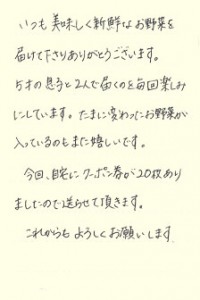 いつも美味しく新鮮なお野菜を
届けて下さりありがとうございます。
5才の息子と2人で届くのを毎回楽しみ
にしています。たまに変わったお野菜が
入っているのもまた嬉しいです。
今回、自宅にクーポン券が20枚あり
ましたので送らせて頂きます。
これからもよろしくお願いします